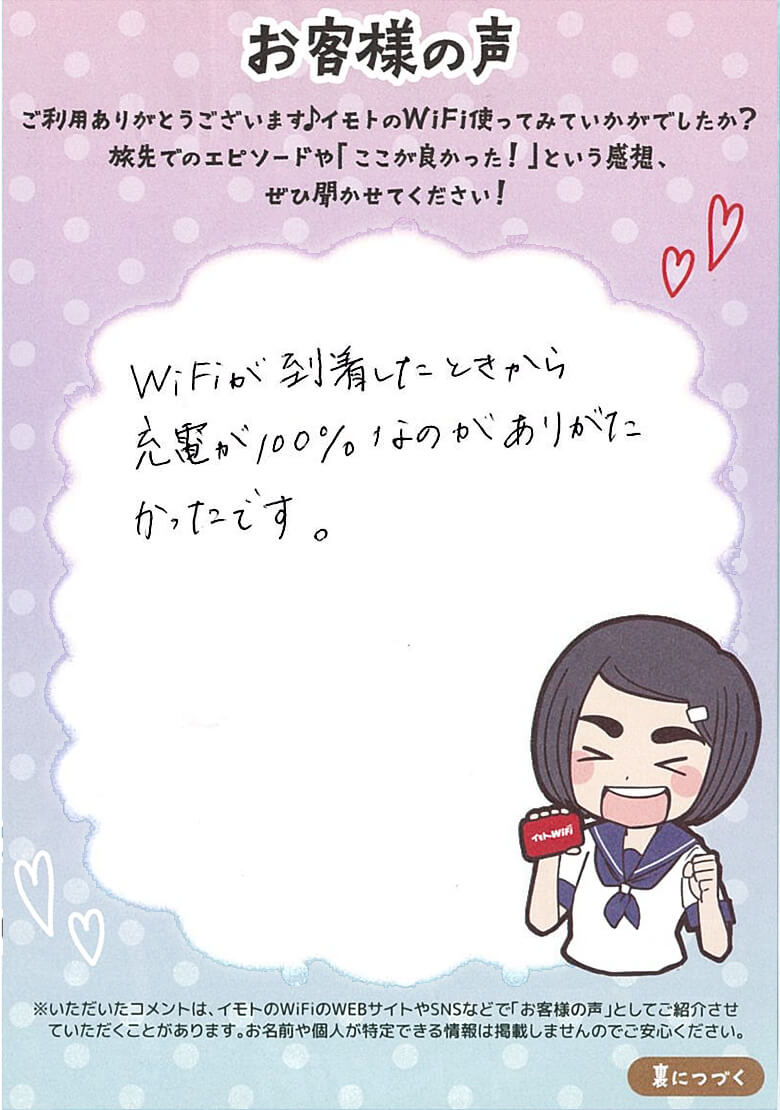 お客様の声
ご利用ありがとうございます♪イモトのWiFi使ってみていかがでしたか?
旅先でのエピソードや「ここが良かった!」という感想、
ぜひ聞かせてください!
WiFiが到着したときから
充電が100%なのがありがた
かったです。
イモトのWiFi
※いただいたコメントは、イモトのWiFiのWEBサイトやSNSなどで「お客様の声」としてご紹介させ
ていただくことがあります。お名前や個人が特定できる情報は掲載しませんのでご安心ください。
裏につづく